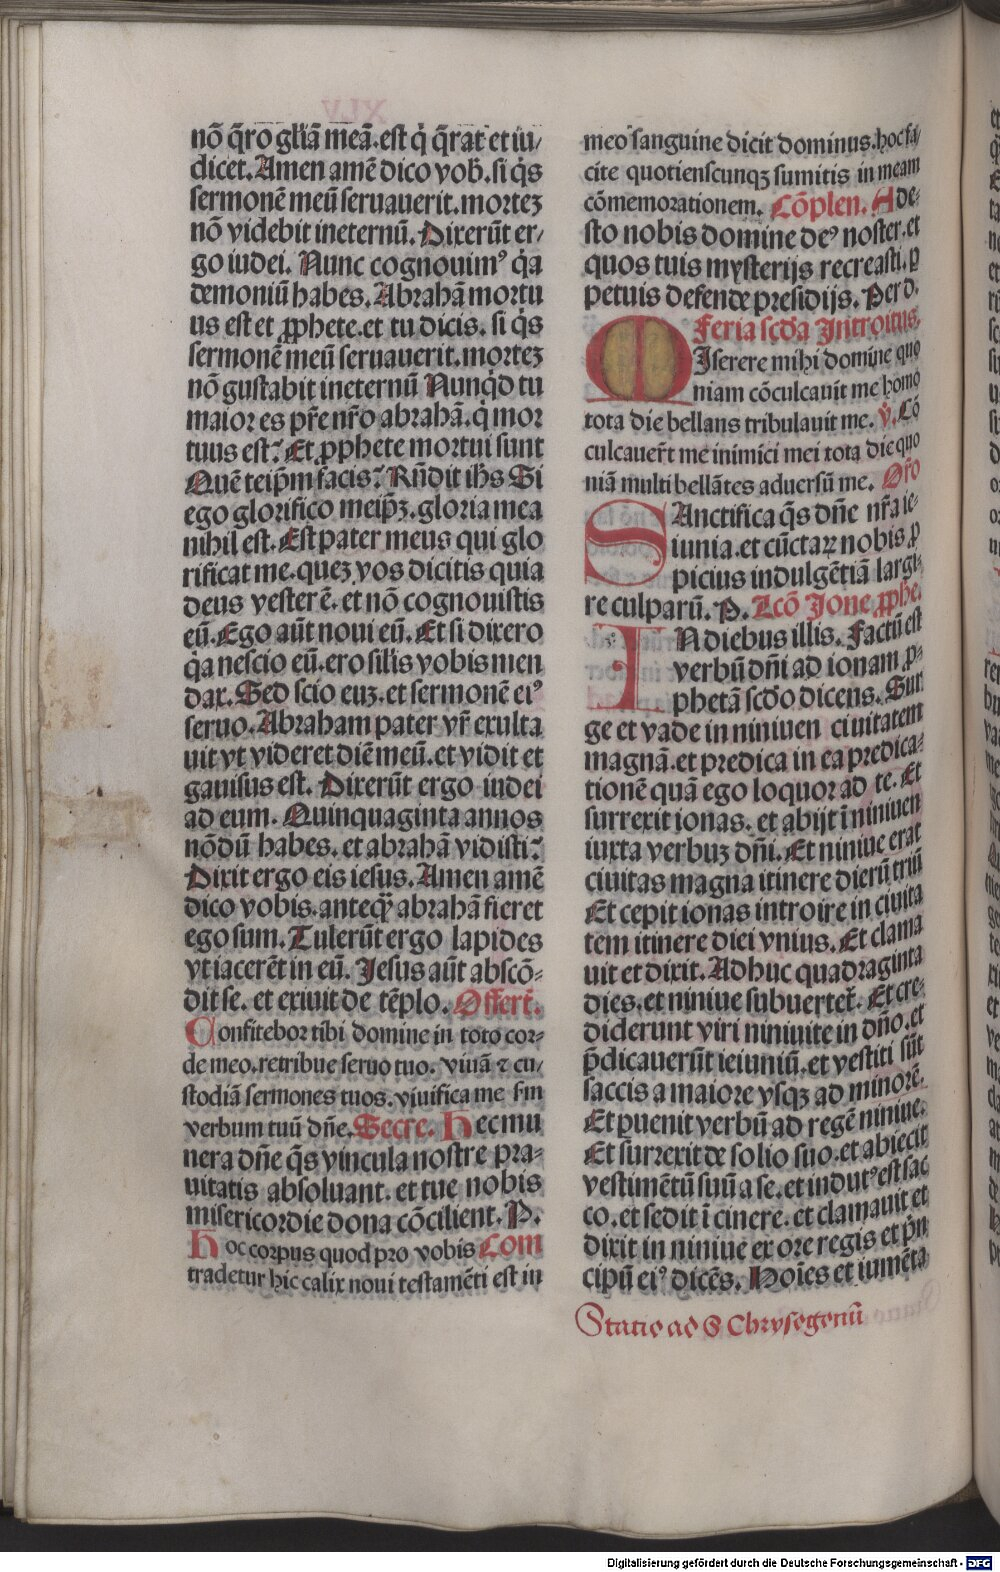 nō q̄ro gliā meā. est q̇ q̄rat et iu/
dicet. Amen amē dico vob̄. si q̇s
sermonē meū seruauerit. mortez
nō videbit ineternū. Dixerūt er/
go iudei. Nunc cognouimꝰ q̇a
demoniū habes. Abrahā mortu
us est et ꝓphete. et tu dicis. si q̇s
sermonē meū seruauerit. mortez
nō gustabit ineternū Nunqḋ tu
maior es pr̄e nr̄o abrahā. q̇ mor
tuus est? Et ꝓphete mortui sunt
Quē teip̄m facis? Rn̄dit ihs Si
ego glorifico meip̄ꝫ. gloria mea
nihil est. Est pater meus qui glo
rificat me. quez vos dicitis quia
deus vester ē. et nō cognouistis
eū. Ego aūt noui eū. Et si dixero
q̇a nescio eū. ero silis vobis men
dax. Sed scio euz. et sermonē eiꝰ
seruo. Abraham pater vr̄ exulta
uit vt videret diē meū. et vidit et
gauisus est. Dixerūt ergo iudei
ad eum. Quinquaginta annos
nōdū habes. et abrahā vidisti?
Dixit ergo eis iesus. Amen amē
dico vobis. anteqꝫ abrahā fieret
ego sum. Tulerūt ergo lapides
vt iacerēt in eū. Jesus aūt abscō-
dit se. et exiuit de tēplo. Offert̄.
Confitebor tibi domine in toto cor-
de meo. retribue seruo tuo. viuā ⁊ cu/
stodiā sermones tuos. viuifica me s̄m
verbum tuū dn̄e. Secre. Hec mu
nera dn̄e q̄s vincula nostre pra-
uitatis absoluant. et tue nobis
misericordie dona cōcilient. P.
Hoc corpus quod pro vobis Com
tradetur hic calix noui testamēti est in
meo sanguine dicit dominus. hoc fa/
cite quotienscunqꝫ sumitis in meam
cōmemorationem. Cōplen. Ade-
sto nobis domine deꝰ noster. et
quos tuis mysterijs recreasti. ꝑ
petuis defende presidijs. Per d.
Feria scd̄a Introitus.
MIserere mihi domine quo
niam cōculcauit me homo
tota die bellans tribulauit me. V̇. Cō
culcauer̄t me inimici mei tota die quo
niā multi bellātes aduersū me. Or̄o
SAnctifica q̄s dn̄e nr̄a ie-
iunia. et cūctaꝝ nobis ꝓ
picius indulgētiā largi-
re culparū. P. Lcō Jone ꝓphe.
IN diebus illis. Factū est
verbū dn̄i ad ionam ꝓ-
phetā scd̄o dicens. Sur
ge et vade in niniuen ciuitatem
magnā. et predica in ea predica-
tionē quā ego loquor ad te. Et
surrexit ionas. et abijt ī niniuen
iuxta verbuz dn̄i. Et niniue erat
ciuitas magna itinere dierū triū
Et cepit ionas introire in ciuita
tem itinere diei vnius. Et clama
uit et dixit. Adhuc quadraginta
dies. et niniue subuertet̄. Et cre-
diderunt viri niniuite in dn̄o. et
p̄dicauerūt ieiuniū. et vestiti sūt
saccis a maiore vsqꝫ ad minorē.
Et puenit verbū ad regē niniue.
Et surrexit de solio suo. et abiecit
vestimētū suū a se. et indutꝰ est sac
co. et sedit ī cinere. et clamauit et
dixit in niniue ex ore regis et p̄n
cipū eiꝰ dicēs. Hoīes et iumēta
Statio ad S Chrysogonū
Digitalisierung gefördert durch die Deutsche Forschungsgemeinschaft - DFG